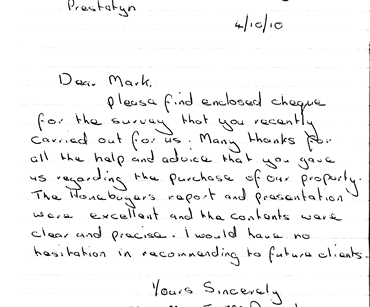 Prestatyn
4/10/10
Dear Mark,
Please find enclosed cheque
for the survey that you recently
carried out for us. Many thanks for
all the help and advice that you gave
us regarding the purchase of our property.
The Homebuyers report and presentation
were excellent and the contents were
clear and precise. I would have no
hesitation in recommending to future clients.
Yours Sincerely